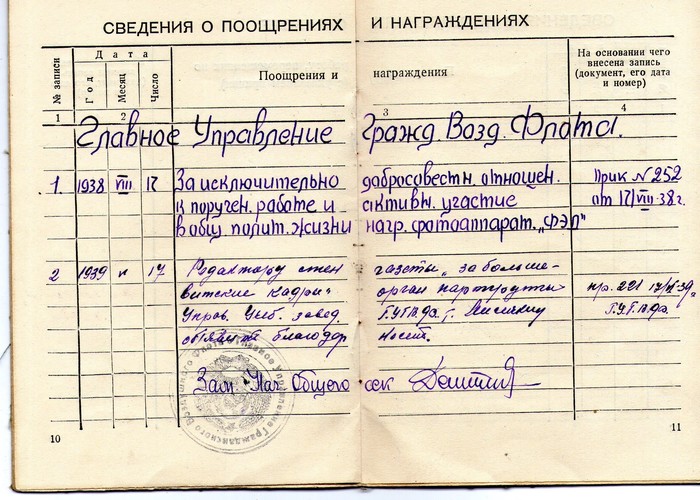 СВЕДЕНИЯ О ПООЩРЕНИЯХ И НАГРАЖДЕНИЯХ
№ записи
Дата
Год
Месяц
Число
Поощрения и награждения
На основании чего
внесена запись
(документ, его дата
и номер)
1 2 3 4
Главное Управление Гражд. Возд. Флота.
1. 1938 VIII 17 За исключительно добросовестн. отношен. Прик № 252
к поручен. работе и активн. участие от 17/VIII-38г.
в общ. полит. жизни нагр. фотоаппарат. „ФЭД"
2 1939 17 Редактору стен газеты „за больше-
витские кадры" орган парторг
Упр. заведен. ГУГВФ т.
объявлена благодар ность.
пр. 221
ГУГВФ
Зам. Нач. Общего сек
10
11